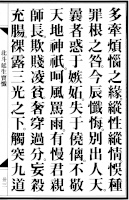 多牽煩惱之緣從性縱情悞種
罪根之咎今辰懺悔別出人天
曇者惑于嫉妬失于僥倖不敬
天地神祇呵風罵雨有慢君親
師長欺賤凌貧奢穿過分妄殺
充腸裸露三光之下觸突九道
北斗延生寶懺